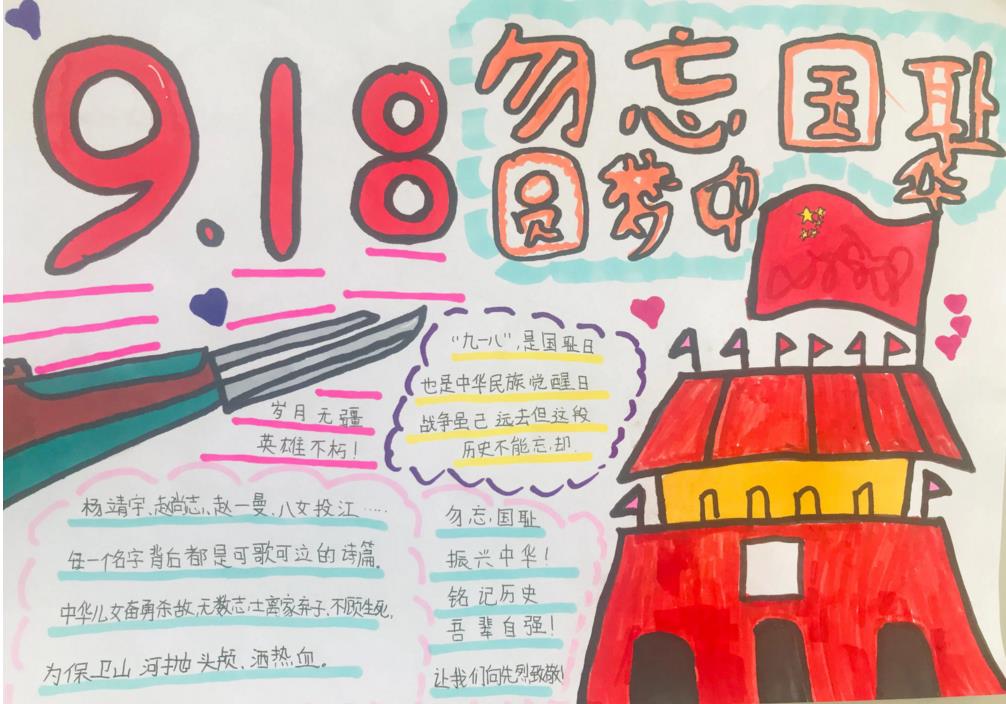 9.18
勿忘国耻
圆梦中华
"九一八",是国耻日
也是中华民族觉醒日
战争虽已远去但这段
历史不能忘却.
岁月无疆
英雄不朽!
杨靖宇、赵尚志、赵一曼、八女投江……
每一个名字背后都是可歌可泣的诗篇。
中华儿女奋勇杀敌,无数志士离家弃子、不顾生死,
为保卫山河抛头颅、洒热血。
勿忘国耻
振兴中华!
铭记历史
吾辈自强!
让我们向先烈致敬!